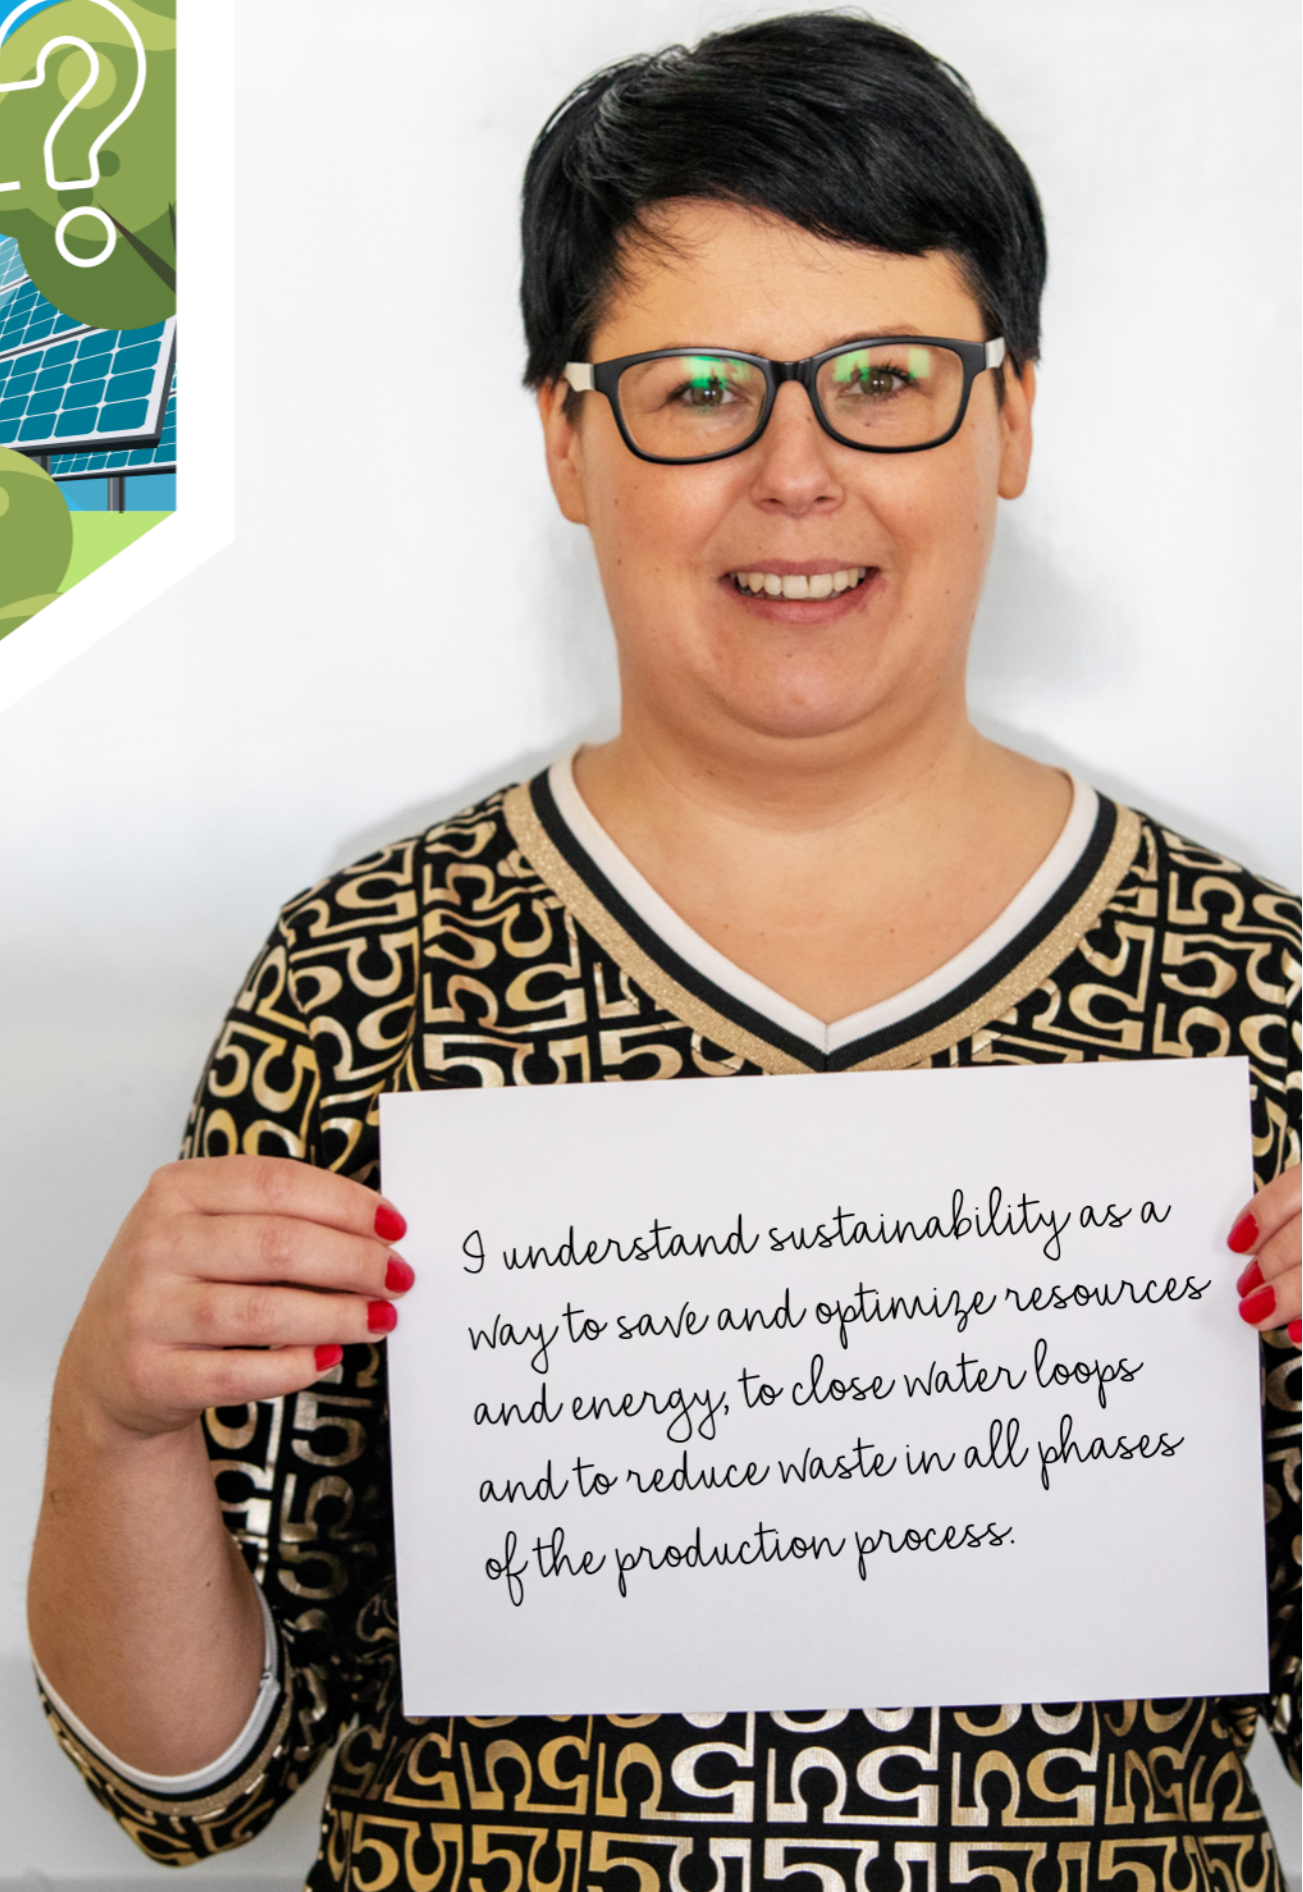 ?
I understand sustainability as a
way to save and optimize resources
and energy, to close water loops
and to reduce waste in all phases
of the production process.